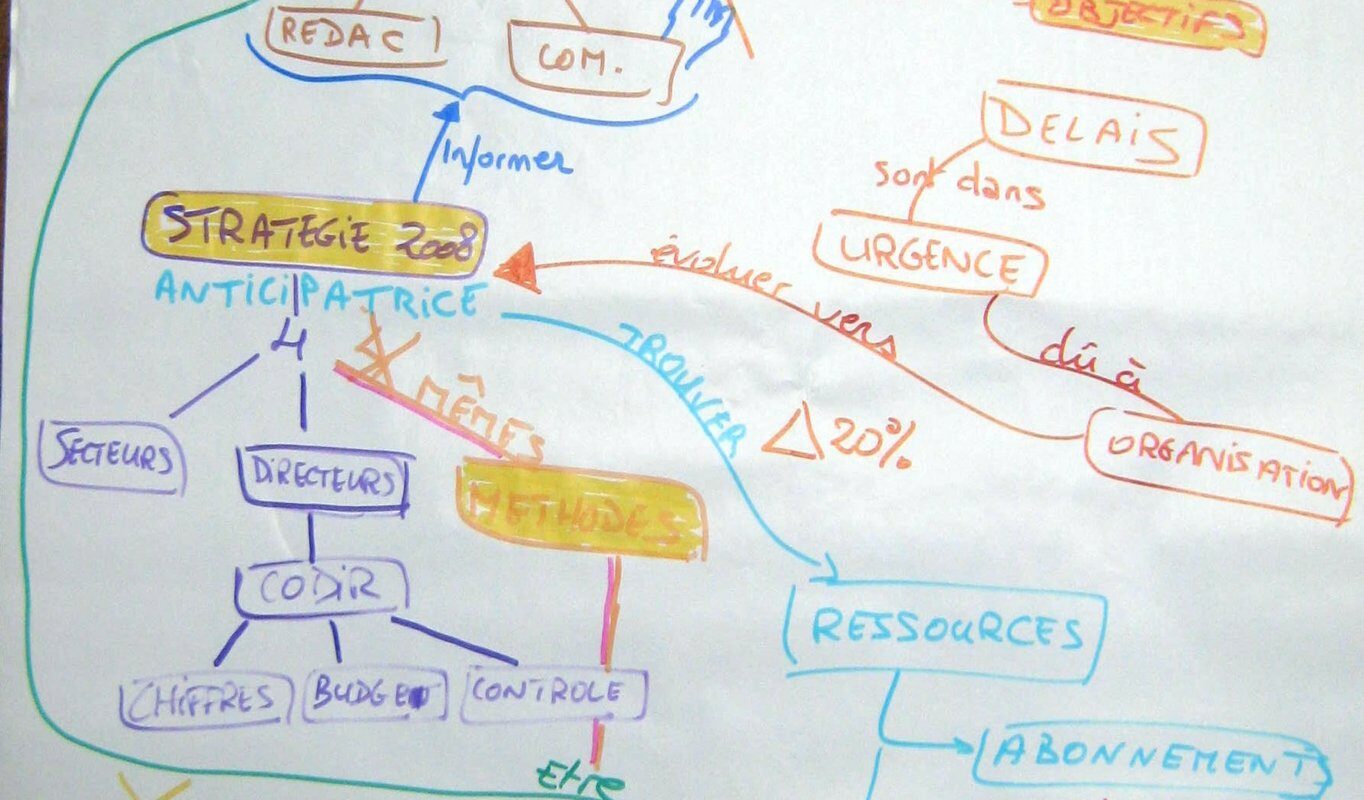 OBJECTIFS
REDAC
COM.
DELAIS
Informer
sont dans
STRATEGIE 2008
URGENCE
évoluer vers
ANTICIPATRICE
4
TROUVER
dû à
MÊMES
△ 20%
ORGANISATION
SECTEURS
DIRECTEURS
METHODES
CODIR
RESSOURCES
CHIFFRES
BUDGET
CONTROLE
ABONNEMENTS
Etre